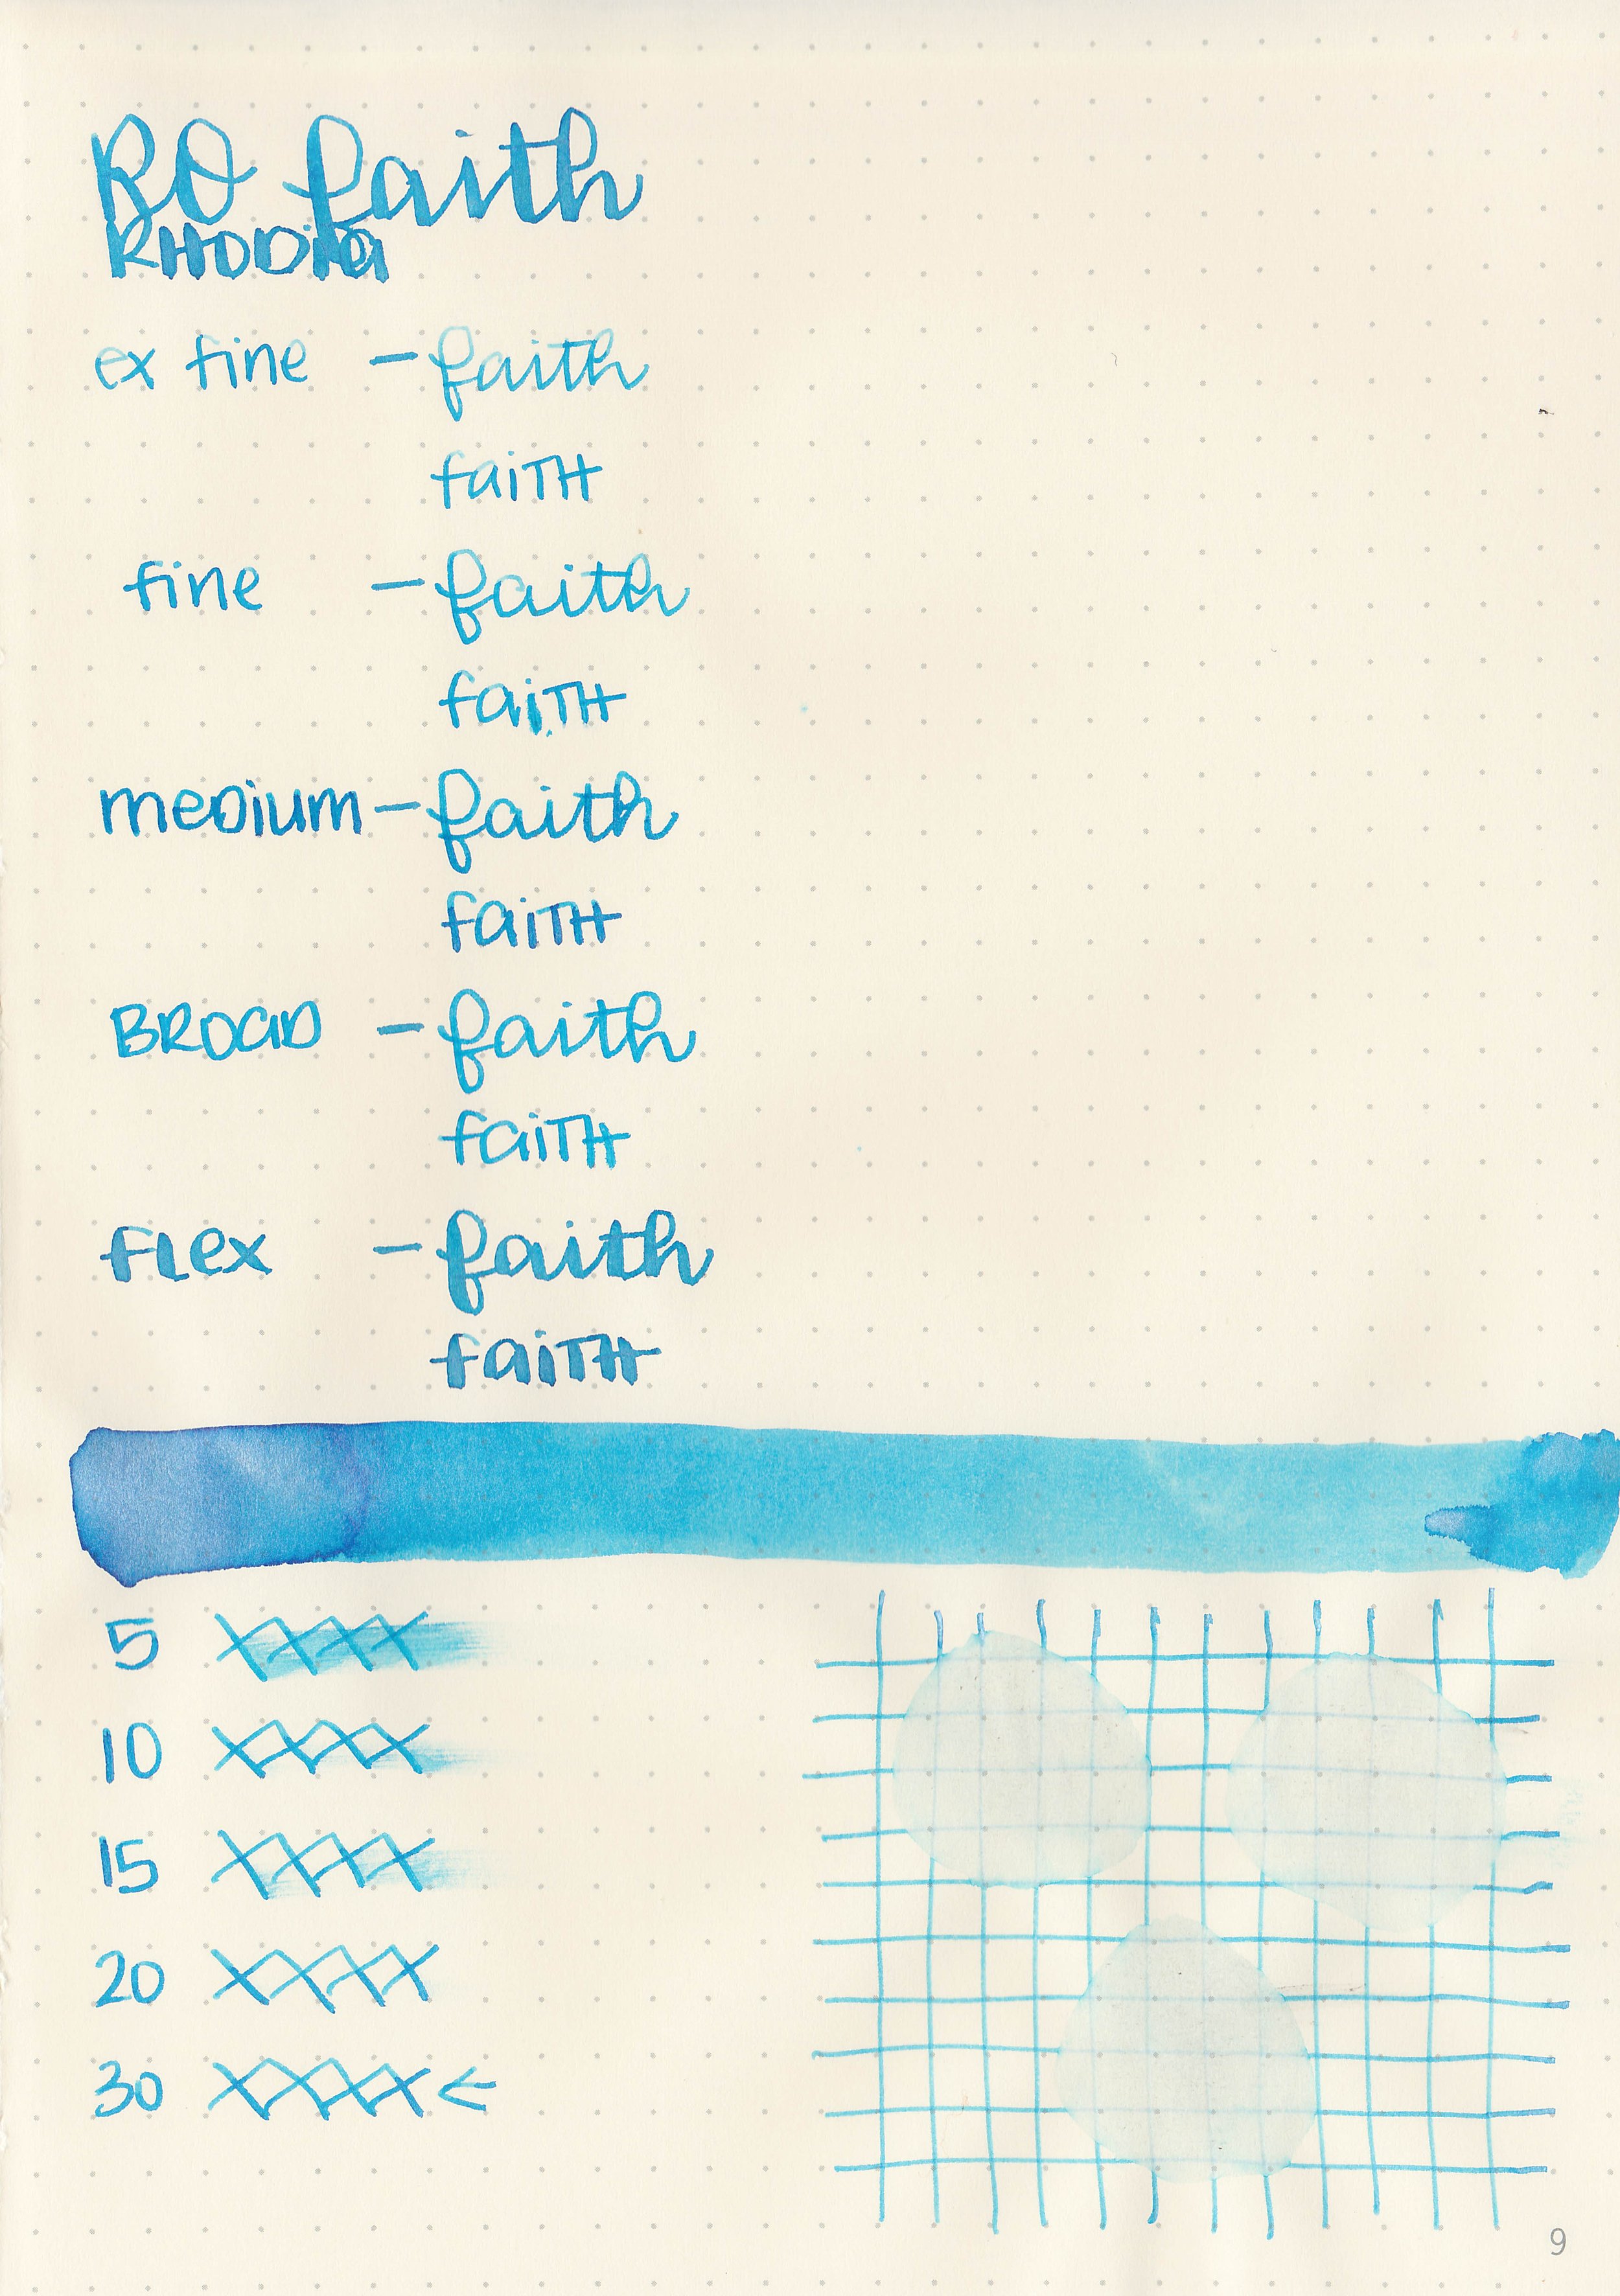 RO faith
RHODIA
ex fine - faith
faiTH
fine - faith
faiTH
meDium - faith
faiTH
BROaD - faith
faiTH
FLex - faith
faiTH
5 XXXX
10 XXXX
15 XXXX
20 XXXX
30 XXXX ←
9